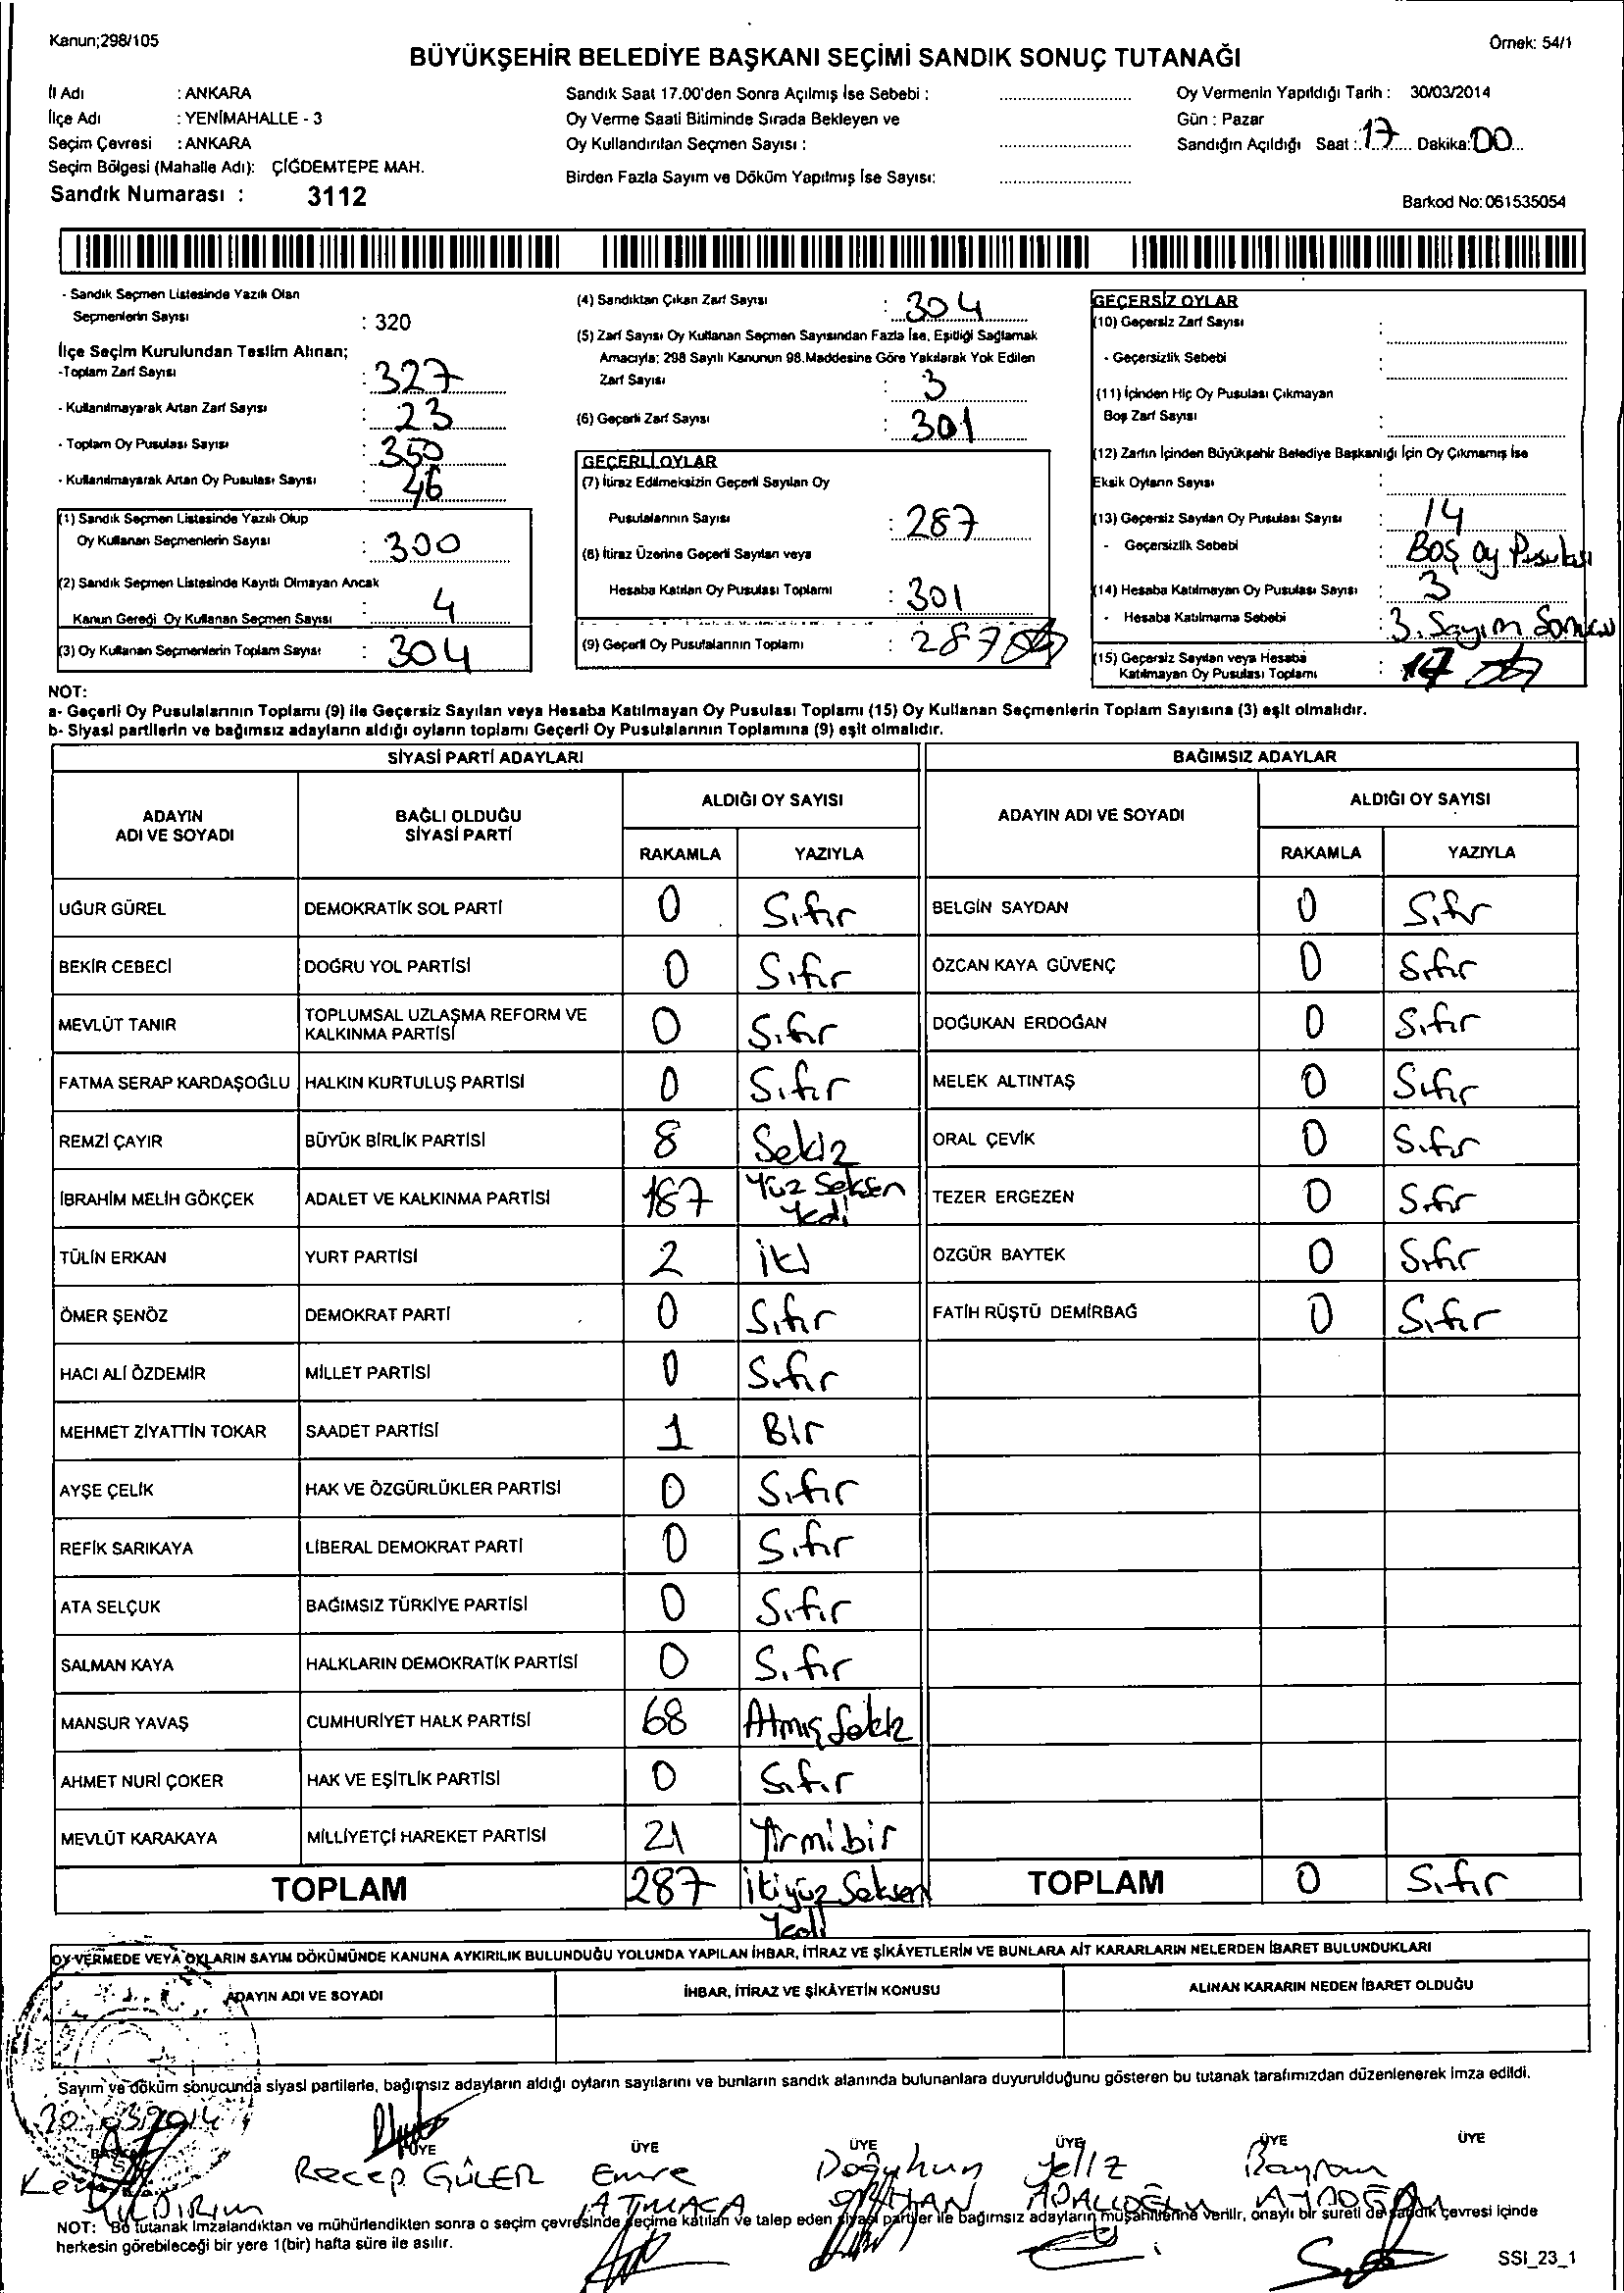 Kanun;298/105
Örnek: 54/1
BÜYÜKŞEHİR BELEDİYE BAŞKANI SEÇİMİ SANDIK SONUÇ TUTANAĞI
İl Adı : ANKARA
İlçe Adı : YENİMAHALLE - 3
Seçim Çevresi : ANKARA
Seçim Bölgesi (Mahalle Adı): ÇİĞDEMTEPE MAH.
Sandık Numarası : 3112
Sandık Saat 17.00'den Sonra Açılmış İse Sebebi :
Oy Verme Saati Bitiminde Sırada Bekleyen ve
Oy Kullandırılan Seçmen Sayısı :
Birden Fazla Sayım ve Döküm Yapılmış İse Sayısı:
Oy Vermenin Yapıldığı Tarih : 30/03/2014
Gün : Pazar
Sandığın Açıldığı Saat : 17 Dakika: 00
Barkod No: 061535054
- Sandık Seçmen Listesinde Yazılı Olan
Seçmenlerin Sayısı : 320
İlçe Seçim Kurulundan Teslim Alınan;
-Toplam Zarf Sayısı : 327
- Kullanılmayarak Artan Zarf Sayısı : 23
- Toplam Oy Pusulası Sayısı : 350
- Kullanılmayarak Artan Oy Pusulası Sayısı : 46
(1) Sandık Seçmen Listesinde Yazılı Olup
Oy Kullanan Seçmenlerin Sayısı : 300
(2) Sandık Seçmen Listesinde Kayıtlı Olmayan Ancak
Kanun Gereği Oy Kullanan Seçmen Sayısı : 4
(3) Oy Kullanan Seçmenlerin Toplam Sayısı : 304
(4) Sandıktan Çıkan Zarf Sayısı : 304
(5) Zarf Sayısı Oy Kullanan Seçmen Sayısından Fazla İse, Eşitliği Sağlamak
Amacıyla; 298 Sayılı Kanunun 98.Maddesine Göre Yakılarak Yok Edilen
Zarf Sayısı : 3
(6) Geçerli Zarf Sayısı : 301
GEÇERLİ OYLAR
(7) İtiraz Edilmeksizin Geçerli Sayılan Oy
Pusulalarının Sayısı : 287
(8) İtiraz Üzerine Geçerli Sayılan veya
Hesaba Katılan Oy Pusulası Toplamı : 301
(9) Geçerli Oy Pusulalarının Toplamı : 287
GEÇERSİZ OYLAR
(10) Geçersiz Zarf Sayısı :
- Geçersizlik Sebebi :
(11) İçinden Hiç Oy Pusulası Çıkmayan
Boş Zarf Sayısı :
(12) Zarfın İçinden Büyükşehir Belediye Başkanlığı İçin Oy Çıkmamış İse
Eksik Oyların Sayısı :
(13) Geçersiz Sayılan Oy Pusulası Sayısı : 14
- Geçersizlik Sebebi : Boş oy Pusulası
(14) Hesaba Katılmayan Oy Pusulası Sayısı : 3
- Hesaba Katılmama Sebebi : 3. Sayım Sonucu
(15) Geçersiz Sayılan veya Hesaba
Katılmayan Oy Pusulası Toplamı : 17
NOT:
a- Geçerli Oy Pusulalarının Toplamı (9) ile Geçersiz Sayılan veya Hesaba Katılmayan Oy Pusulası Toplamı (15) Oy Kullanan Seçmenlerin Toplam Sayısına (3) eşit olmalıdır.
b- Siyasi partilerin ve bağımsız adayların aldığı oyların toplamı Geçerli Oy Pusulalarının Toplamına (9) eşit olmalıdır.
SİYASİ PARTİ ADAYLARI BAĞIMSIZ ADAYLAR
ADAYIN ADI VE SOYADI BAĞLI OLDUĞU SİYASİ PARTİ ALDIĞI OY SAYISI ADAYIN ADI VE SOYADI ALDIĞI OY SAYISI
RAKAMLA YAZIYLA RAKAMLA YAZIYLA
UĞUR GÜREL DEMOKRATİK SOL PARTİ 0 Sıfır BELGİN SAYDAN 0 Sıfır
BEKİR CEBECİ DOĞRU YOL PARTİSİ 0 Sıfır ÖZCAN KAYA GÜVENÇ 0 Sıfır
MEVLÜT TANIR TOPLUMSAL UZLAŞMA REFORM VE KALKINMA PARTİSİ 0 Sıfır DOĞUKAN ERDOĞAN 0 Sıfır
FATMA SERAP KARDAŞOĞLU HALKIN KURTULUŞ PARTİSİ 0 Sıfır MELEK ALTINTAŞ 0 Sıfır
REMZİ ÇAYIR BÜYÜK BİRLİK PARTİSİ 8 Sekiz ORAL ÇEVİK 0 Sıfır
İBRAHİM MELİH GÖKÇEK ADALET VE KALKINMA PARTİSİ 187 Yüz Seksen Yedi TEZER ERGEZEN 0 Sıfır
TÜLİN ERKAN YURT PARTİSİ 2 iki ÖZGÜR BAYTEK 0 Sıfır
ÖMER ŞENÖZ DEMOKRAT PARTİ 0 Sıfır FATİH RÜŞTÜ DEMİRBAĞ 0 Sıfır
HACI ALİ ÖZDEMİR MİLLET PARTİSİ 0 Sıfır
MEHMET ZİYATTİN TOKAR SAADET PARTİSİ 1 Bir
AYŞE ÇELİK HAK VE ÖZGÜRLÜKLER PARTİSİ 0 Sıfır
REFİK SARIKAYA LİBERAL DEMOKRAT PARTİ 0 Sıfır
ATA SELÇUK BAĞIMSIZ TÜRKİYE PARTİSİ 0 Sıfır
SALMAN KAYA HALKLARIN DEMOKRATİK PARTİSİ 0 Sıfır
MANSUR YAVAŞ CUMHURİYET HALK PARTİSİ 68 Atmış Sekiz
AHMET NURİ ÇOKER HAK VE EŞİTLİK PARTİSİ 0 Sıfır
MEVLÜT KARAKAYA MİLLİYETÇİ HAREKET PARTİSİ 21 Yirmibir
TOPLAM 287 ikiyüz Seksen Yedi TOPLAM 0 Sıfır
OY VERMEDE VEYA OYLARIN SAYIM DÖKÜMÜNDE KANUNA AYKIRILIK BULUNDUĞU YOLUNDA YAPILAN İHBAR, İTİRAZ VE ŞİKÂYETLERİN VE BUNLARA AİT KARARLARIN NELERDEN İBARET BULUNDUKLARI
ADAYIN ADI VE SOYADI İHBAR, İTİRAZ VE ŞİKÂYETİN KONUSU ALINAN KARARIN NEDEN İBARET OLDUĞU
Sayım ve döküm sonucunda siyasi partilerle, bağımsız adayların aldığı oyların sayılarını ve bunların sandık alanında bulunanlara duyurulduğunu gösteren bu tutanak tarafımızdan düzenlenerek imza edildi.
30.03.2014
ÜYE ÜYE ÜYE ÜYE ÜYE ÜYE
Recep GÜLER Emre Yeliz Bayram
YILDIRIM
NOT: Bu tutanak imzalandıktan ve mühürlendikten sonra o seçim çevresinde seçime katılan ve talep eden siyasi partiler ile bağımsız adayların müşahitlerine verilir, onaylı bir sureti de sandık çevresi içinde
herkesin görebileceği bir yere 1(bir) hafta süre ile asılır.
SSI_23_1